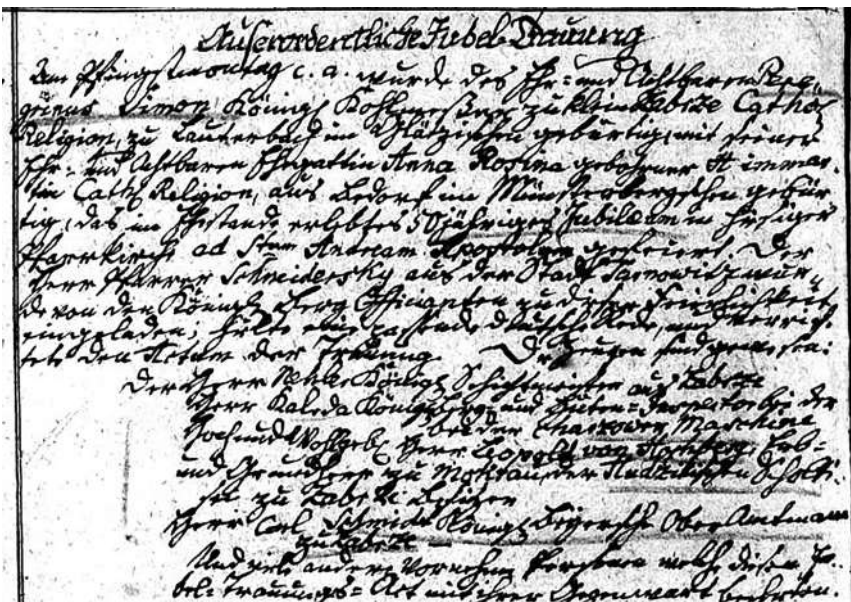 Auserordentliche Jubel-Trauung
Am Pfingstmontag c. a. wurde des Ehr= und Achtbaren Pere„
grinus Simon Königl zu klein Zabrze Cathol
Religion, zu Lauterbach im Glätzischen gebürtig, mit seiner
Ehr= und Achtbaren Ehegattin Anna Rosina gebohrner
tin Cath. Religion, aus Bedorf im Münsterbergschen gebür
tig, das im Ehestande erlebtes 50jähriges Jubilaeum in hiesiger
Pfarrkirche ad Stum Andream Apostolum gefeiert. Der
Herr Pfarrer Schmidersky aus der Stadt Tarnowitz wur„
de von den Königl Berg Officianten zu dieser Feierlichkeit
eingeladen; hielte eine passende deutsche Rede, und verrich
tete den der Trauung. Die Zeugen sind gewesen:
Der Herr Königl Schichtmeister aus Zabrze
Herr Kaleda Königl Berg und Hütten= Inspector bei der
bei der Maschine
Hoch und Wohlgeb. Herr Leopold von Erb=
und Grundherr zu der Scholti„
sei zu Zabrze Besitzer
Herr Carl Schmidt Königl Ober Amtmann
zu Zabrze
Und viele andere Vornehme Personen welche diesen Ju„
bel= Trauungs= Act mit ihrer Gegenwart beehrten.